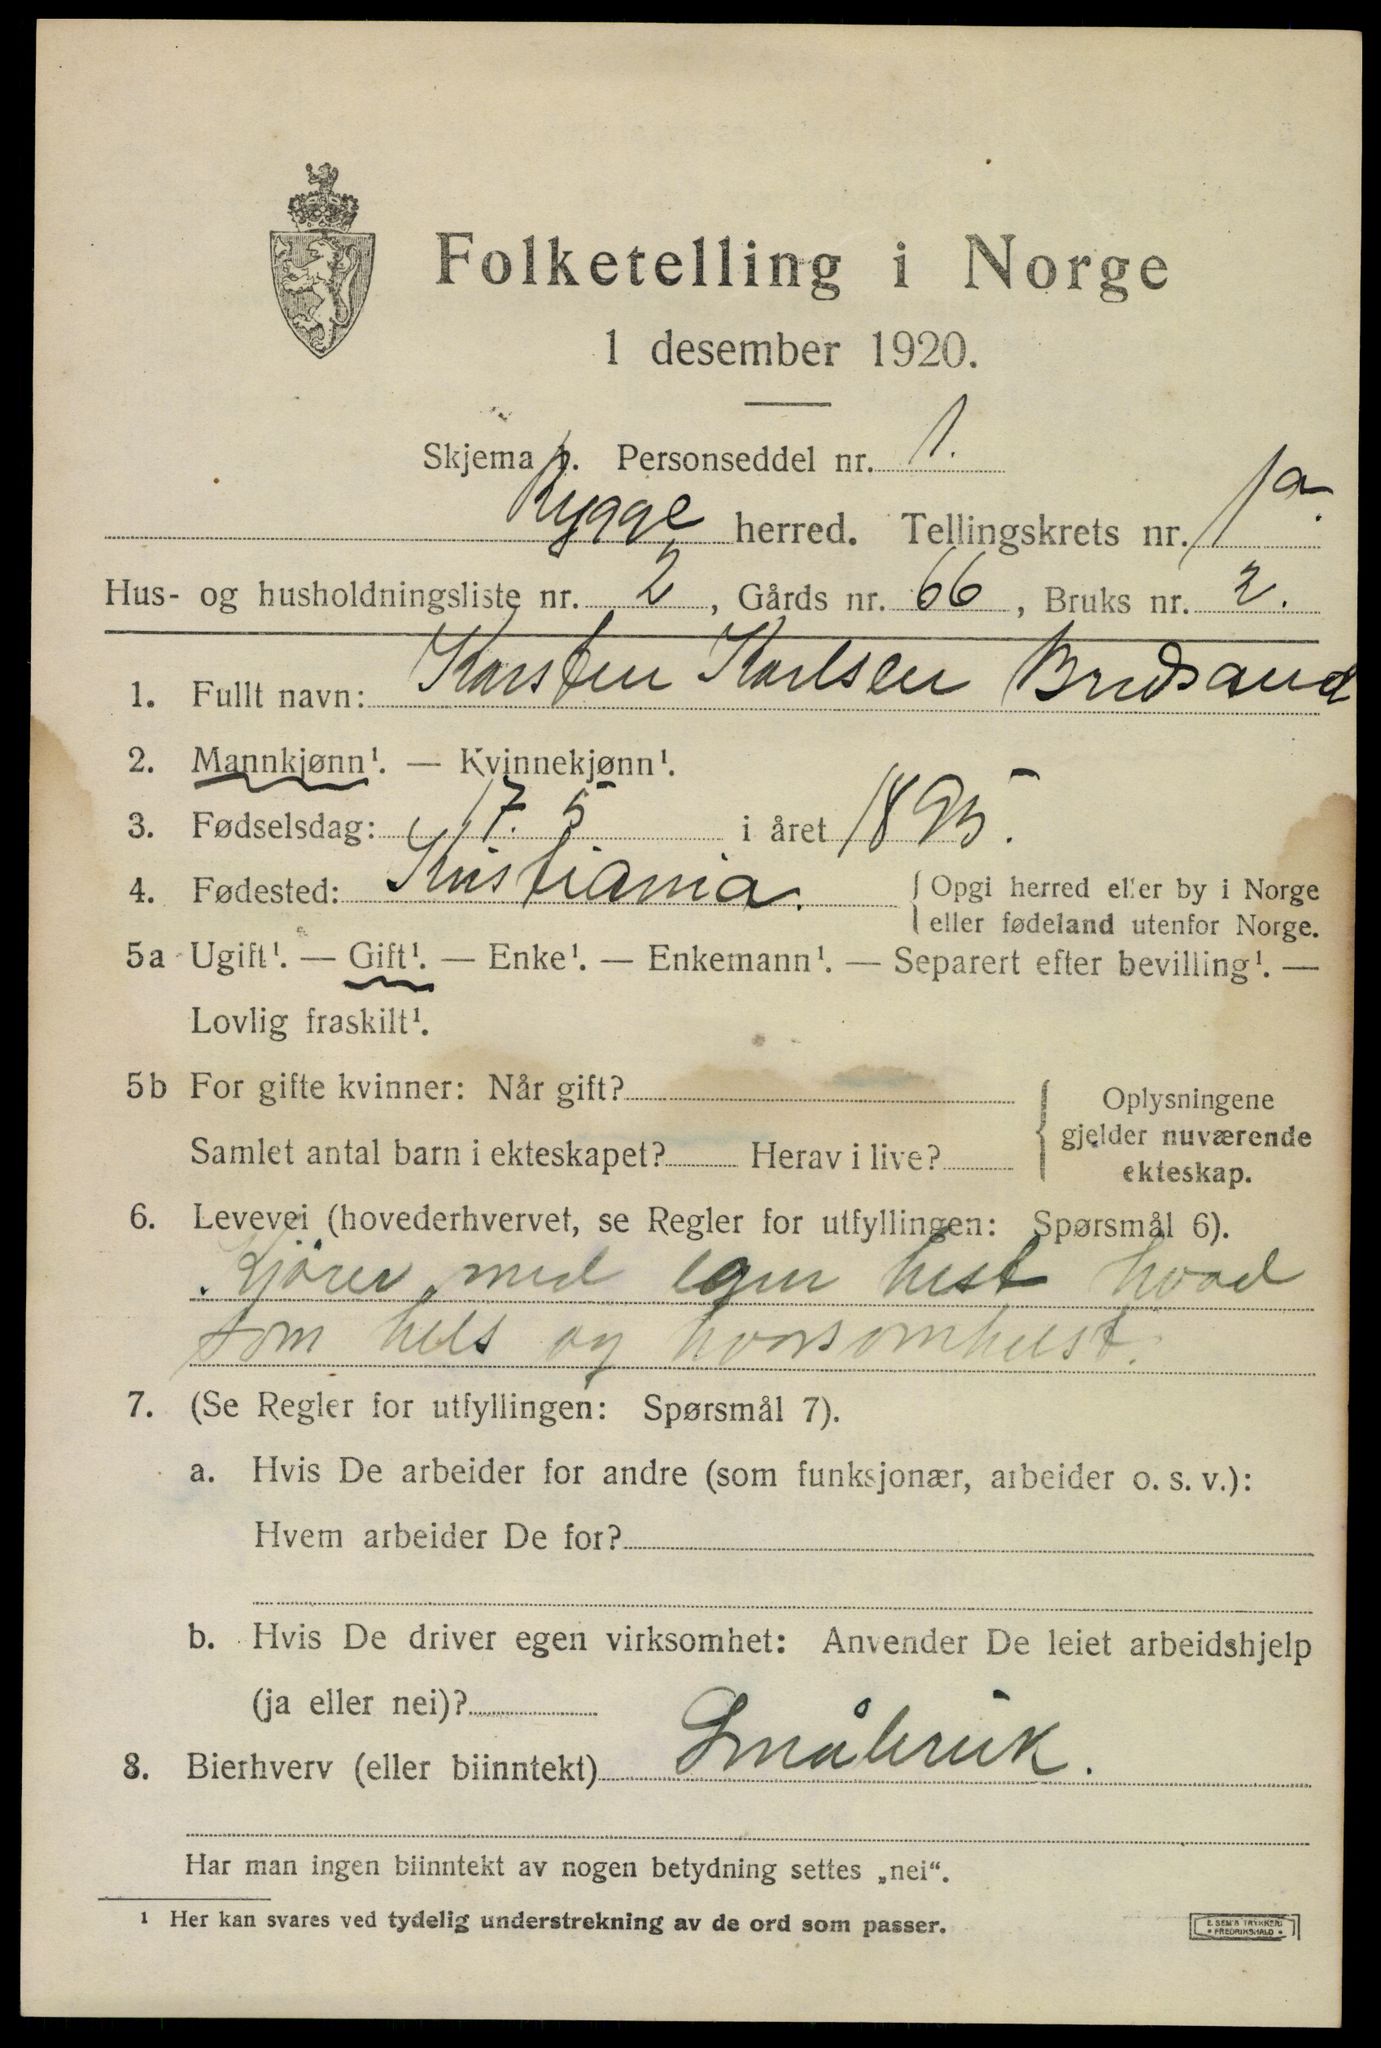 Folketelling i Norge
1 desember 1920.
Skjema . Personseddel nr. 1.
Rygge herred. Tellingskrets nr. 1a.
Hus- og husholdningsliste nr. 2, Gårds nr. 66, Bruks nr. 2.
1. Fullt navn: Karsten Karlsen
2. Mannkjønn¹. — Kvinnekjønn¹.
3. Fødselsdag: 17. 5 i året 1895.
4. Fødested: Kristiania. { Opgi herred eller by i Norge
eller fødeland utenfor Norge.
5a Ugift¹. — Gift¹. — Enke¹. — Enkemann¹. — Separert efter bevilling¹. —
Lovlig fraskilt¹.
5b For gifte kvinner: Når gift?
Samlet antal barn i ekteskapet? Herav i live?
{ Oplysningene
gjelder nuværende
ekteskap.
6. Levevei (hovederhvervet, se Regler for utfyllingen: Spørsmål 6).
Kjører med egen hest hvad
som hels og hvorsomhelst.
7. (Se Regler for utfyllingen: Spørsmål 7).
a. Hvis De arbeider for andre (som funksjonær, arbeider o. s. v.):
Hvem arbeider De for?
b. Hvis De driver egen virksomhet: Anvender De leiet arbeidshjelp
(ja eller nei)?
8. Bierhverv (eller biinntekt) Småbruk.
Har man ingen biinntekt av nogen betydning settes „nei“.
¹ Her kan svares ved tydelig understrekning av de ord som passer.
E. SEM'S TRYKKERI
• FREDRIKSHALD •